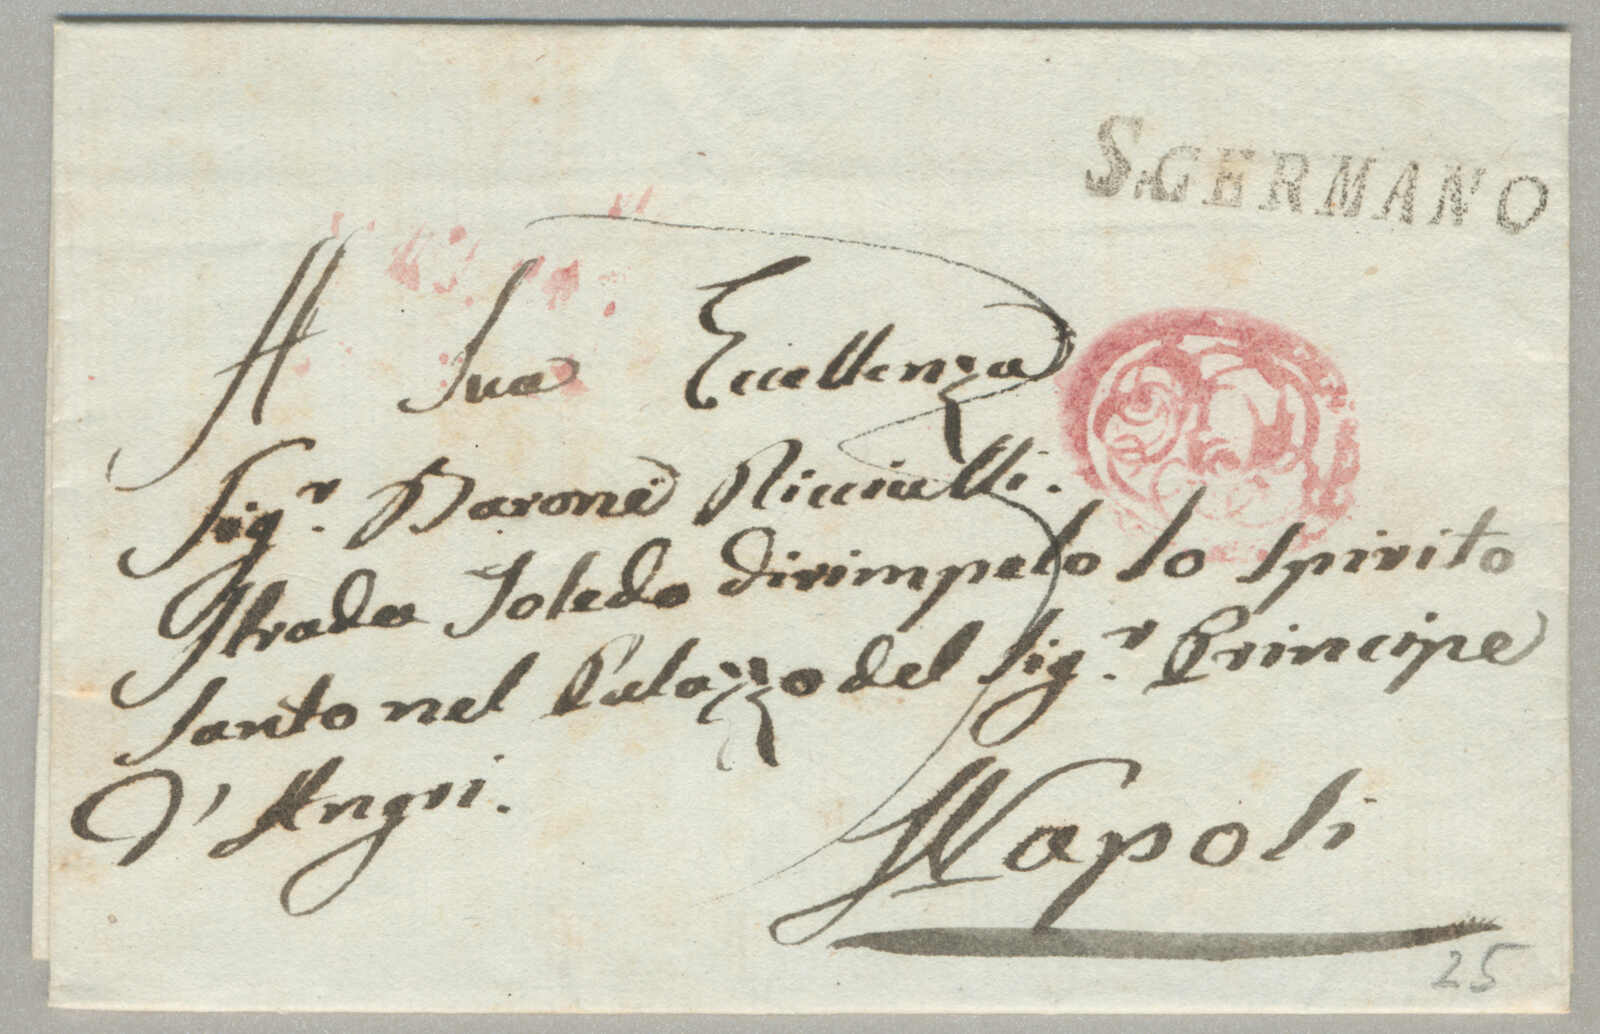 S. GERMANO
A Sua Eccellenza
Sig.r Barone Ricciulli.
Strada Toledo dirimpeto lo Spirito
Santo nel Palazzo del Sig.r Principe
D'Angri.
Napoli
25